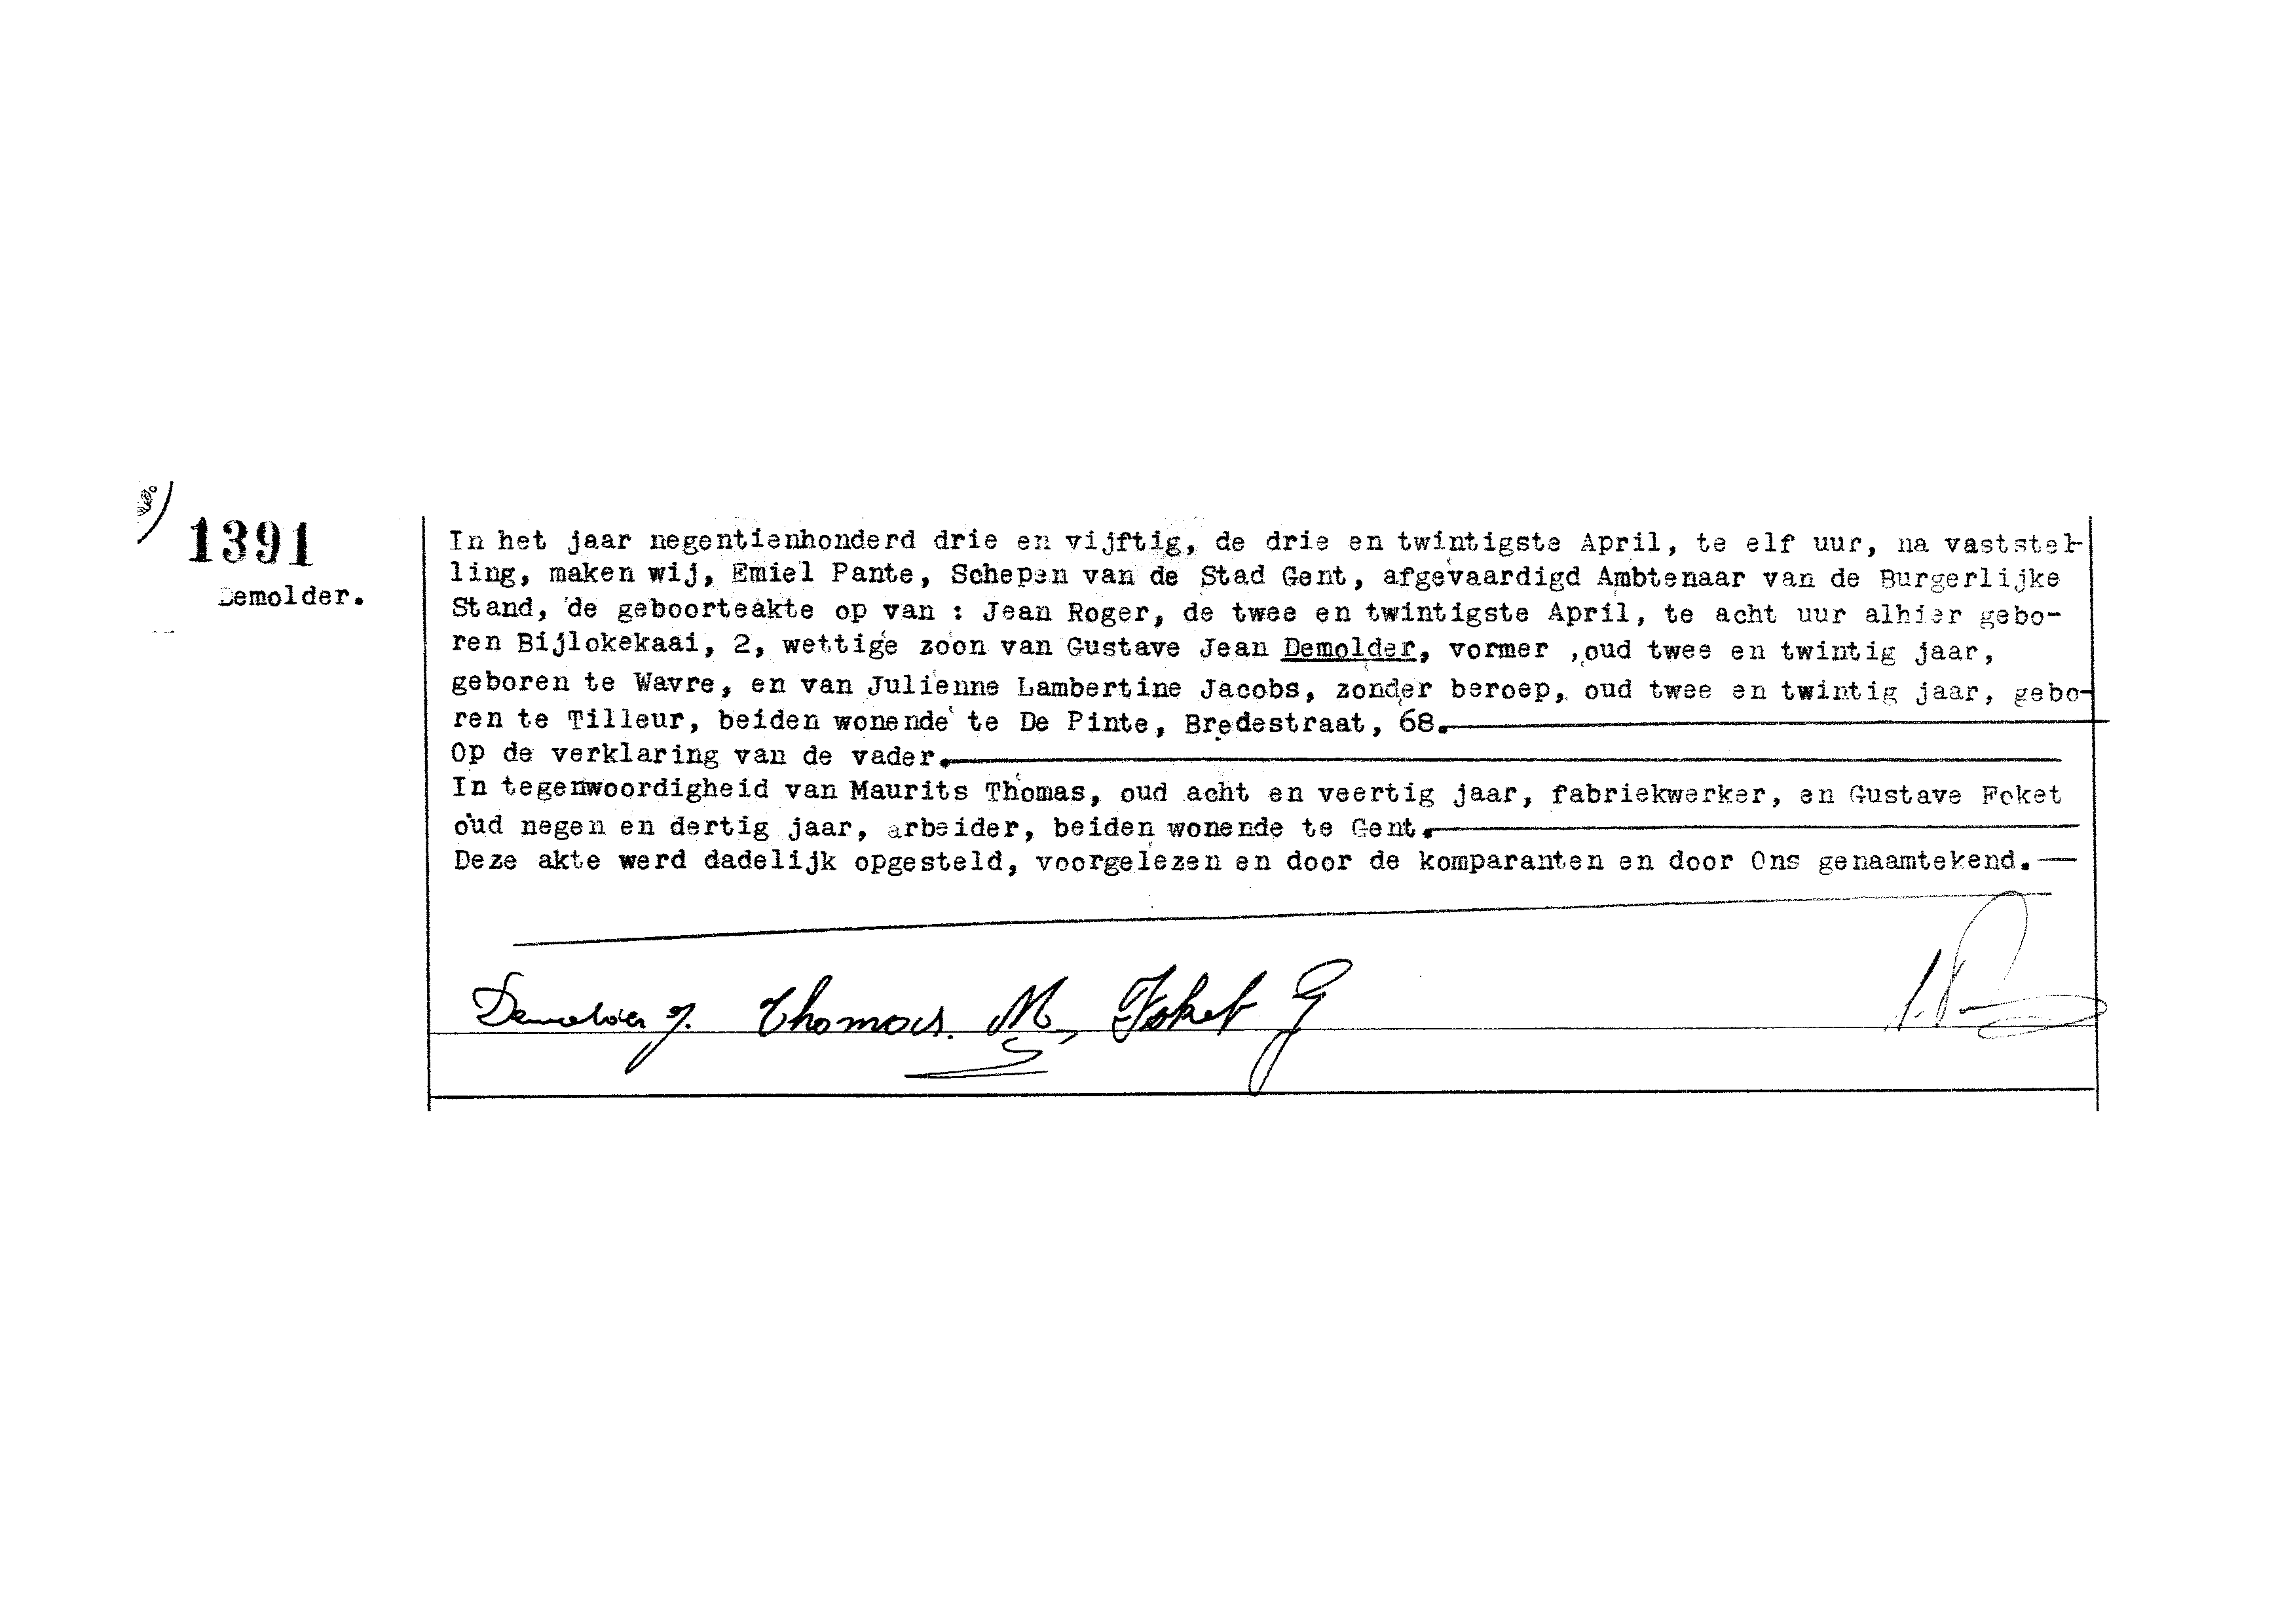 1391
Demolder.
In het jaar negentienhonderd drie en vijftig, de drie en twintigste April, te elf uur, na vaststel-
ling, maken wij, Emiel Pante, Schepen van de Stad Gent, afgevaardigd Ambtenaar van de Burgerlijke
Stand, de geboorteakte op van : Jean Roger, de twee en twintigste April, te acht uur alhier gebo-
ren Bijlokekaai, 2, wettige zoon van Gustave Jean Demolder, vormer ,oud twee en twintig jaar,
geboren te Wavre, en van Julienne Lambertine Jacobs, zonder beroep, oud twee en twintig jaar, gebo-
ren te Tilleur, beiden wonende te De Pinte, Bredestraat, 68.
Op de verklaring van de vader.
In tegenwoordigheid van Maurits Thomas, oud acht en veertig jaar, fabriekwerker, en Gustave Foket
oud negen en dertig jaar, arbeider, beiden wonende te Gent.
Deze akte werd dadelijk opgesteld, voorgelezen en door de komparanten en door Ons genaamtekend.
Demolder g. Thomas. M, Foket G